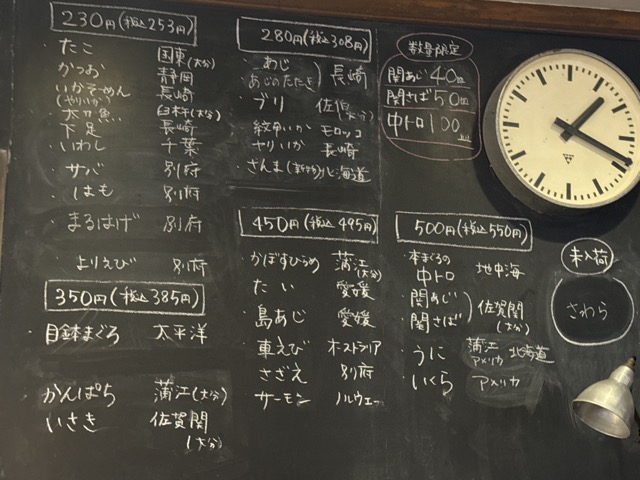 230円(税込253円)
・たこ 国東(大分)
かつお 静岡
いかそーめん 長崎
(やりいか)
・太刀魚 臼杵(大分)
下足 長崎
・いわし 千葉
・サバ 別府
・はも 別府
・まるはげ 別府
・よりえび 別府
350円(税込385円)
・目鉢まぐろ 太平洋
・かんぱち 蒲江(大分)
いさき 佐賀関
(大分)
280円(税込308円)
・あじ
あじのたたき 長崎
・ブリ 佐伯(大分)
・紋甲いか モロッコ
・やりいか 長崎
・さんま 北海道
450円(税込495円)
かぼすひらめ 蒲江
(大分)
・たい 愛媛
・島あじ 愛媛
・車えび オーストラリア
・さざえ 別府
サーモン ノルウェー
数量限定
関あじ40皿
関さば50皿
中トロ100皿
500円(税込550円)
・本まぐろの
中トロ 地中海
・関あじ
・関さば 佐賀関
(大分)
・うに 蒲江 北海道
アメリカ
・いくら アメリカ
未入荷
さわら